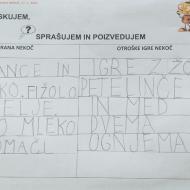 SKUJEM,
SPRAŠUJEM IN POIZVEDUJEM
RANA NEKOČ
OTROŠKE IGRE NEKOČ
ANCE IN
IGRE Z ŽO
KO, FIŽOLO
PETELINČE
IN MED
O MLEKO
DVEMA
OMAČI
OGNJEMA